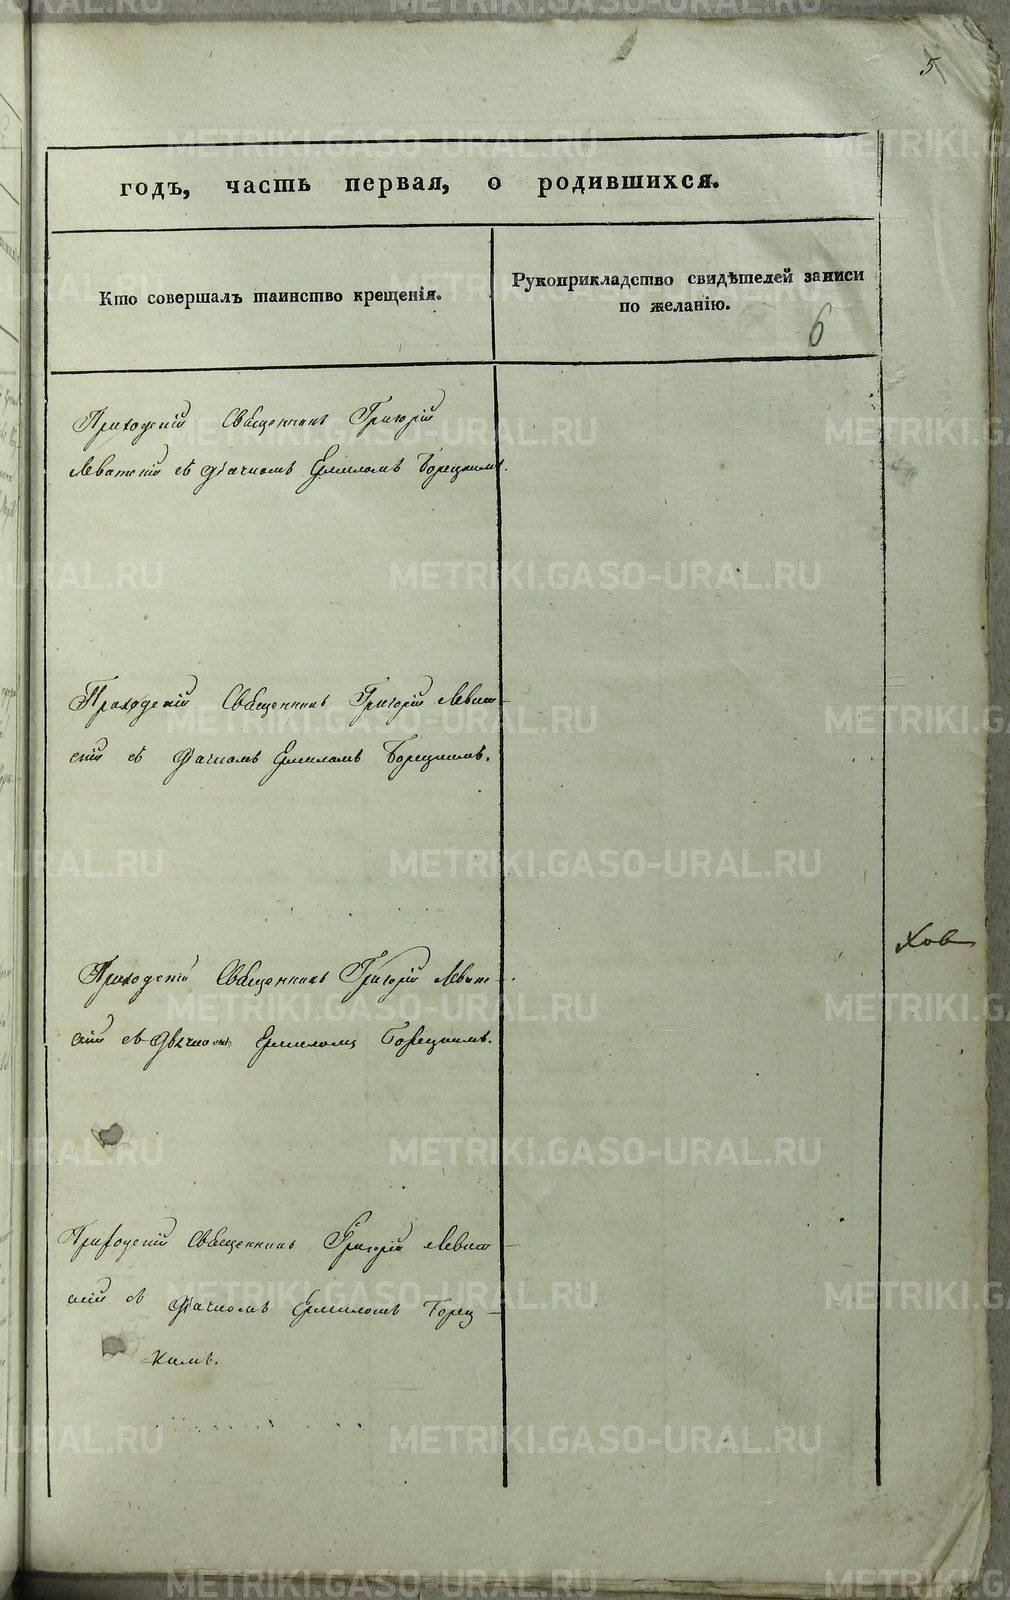 5
годъ, часть первая, о родившихся.
Кто совершалъ таинство крещенія.
Рукоприкладство свидѣтелей записи
по желанію.
6
Приходскій Священникъ Григорій
Левитскій съ дьячкомъ Ермиломъ Борецкимъ.
Приходскій Священникъ Григорій Левит-
скій съ дьячкомъ Ермиломъ Борецкимъ.
Приходскій Священникъ Григорій Левит-
скій съ дьячкомъ Ермиломъ Борецкимъ.
Приходскій Священникъ Григорій Левит-
скій съ дьячкомъ Ермиломъ Борец-
кимъ.
METRIKI.GASO-URAL.RU